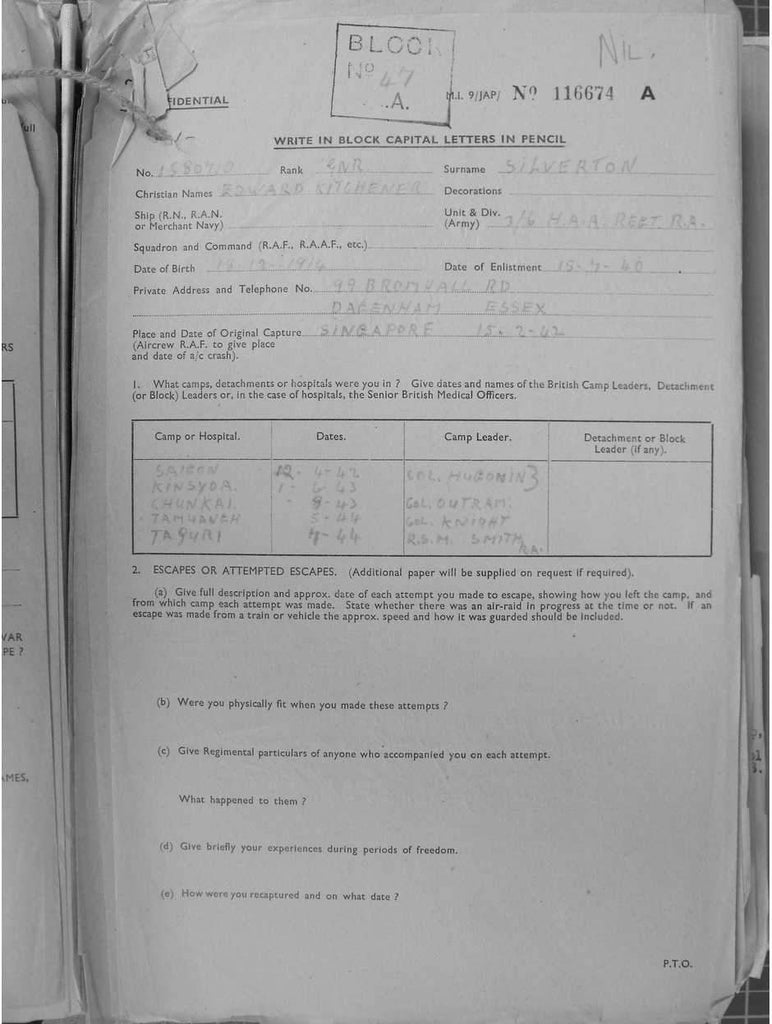 BLOCK
Nº 47
A.
NIL.
IDENTIAL
M.I. 9/JAP/ Nº 116674 A
WRITE IN BLOCK CAPITAL LETTERS IN PENCIL
No. Rank GNR Surname SILVERTON
Christian Names EDWARD KITCHENER Decorations
Ship (R.N., R.A.N. or Merchant Navy)
Unit & Div. (Army) 3/6 H.A.A. REGT R.A.
Squadron and Command (R.A.F., R.A.A.F., etc.)
Date of Birth 18-12-1914 Date of Enlistment 15-7-40
Private Address and Telephone No. 99 BROMHALL RD
DAGENHAM ESSEX
Place and Date of Original Capture SINGAPORE 15.2-42
(Aircrew R.A.F. to give place
and date of a/c crash).
1. What camps, detachments or hospitals were you in ? Give dates and names of the British Camp Leaders, Detachment
(or Block) Leaders or, in the case of hospitals, the Senior British Medical Officers.
Camp or Hospital. Dates. Camp Leader. Detachment or Block Leader (if any).
SAIGON 12-4-42 COL. HUGONIN
KINSYOA. 1-6-43
CHUNKAI. - 9-43 COL. OUTRAM.
TAMUANGH 5-44 COL. KNIGHT
TAGURI 7-44 R.S.M. SMITH
RA.
2. ESCAPES OR ATTEMPTED ESCAPES. (Additional paper will be supplied on request if required).
(a) Give full description and approx. date of each attempt you made to escape, showing how you left the camp, and
from which camp each attempt was made. State whether there was an air-raid in progress at the time or not. If an
escape was made from a train or vehicle the approx. speed and how it was guarded should be included.
(b) Were you physically fit when you made these attempts ?
(c) Give Regimental particulars of anyone who accompanied you on each attempt.
What happened to them ?
(d) Give briefly your experiences during periods of freedom.
(e) How were you recaptured and on what date ?
P.T.O.
ull
RS
VAR
PE ?
AMES.